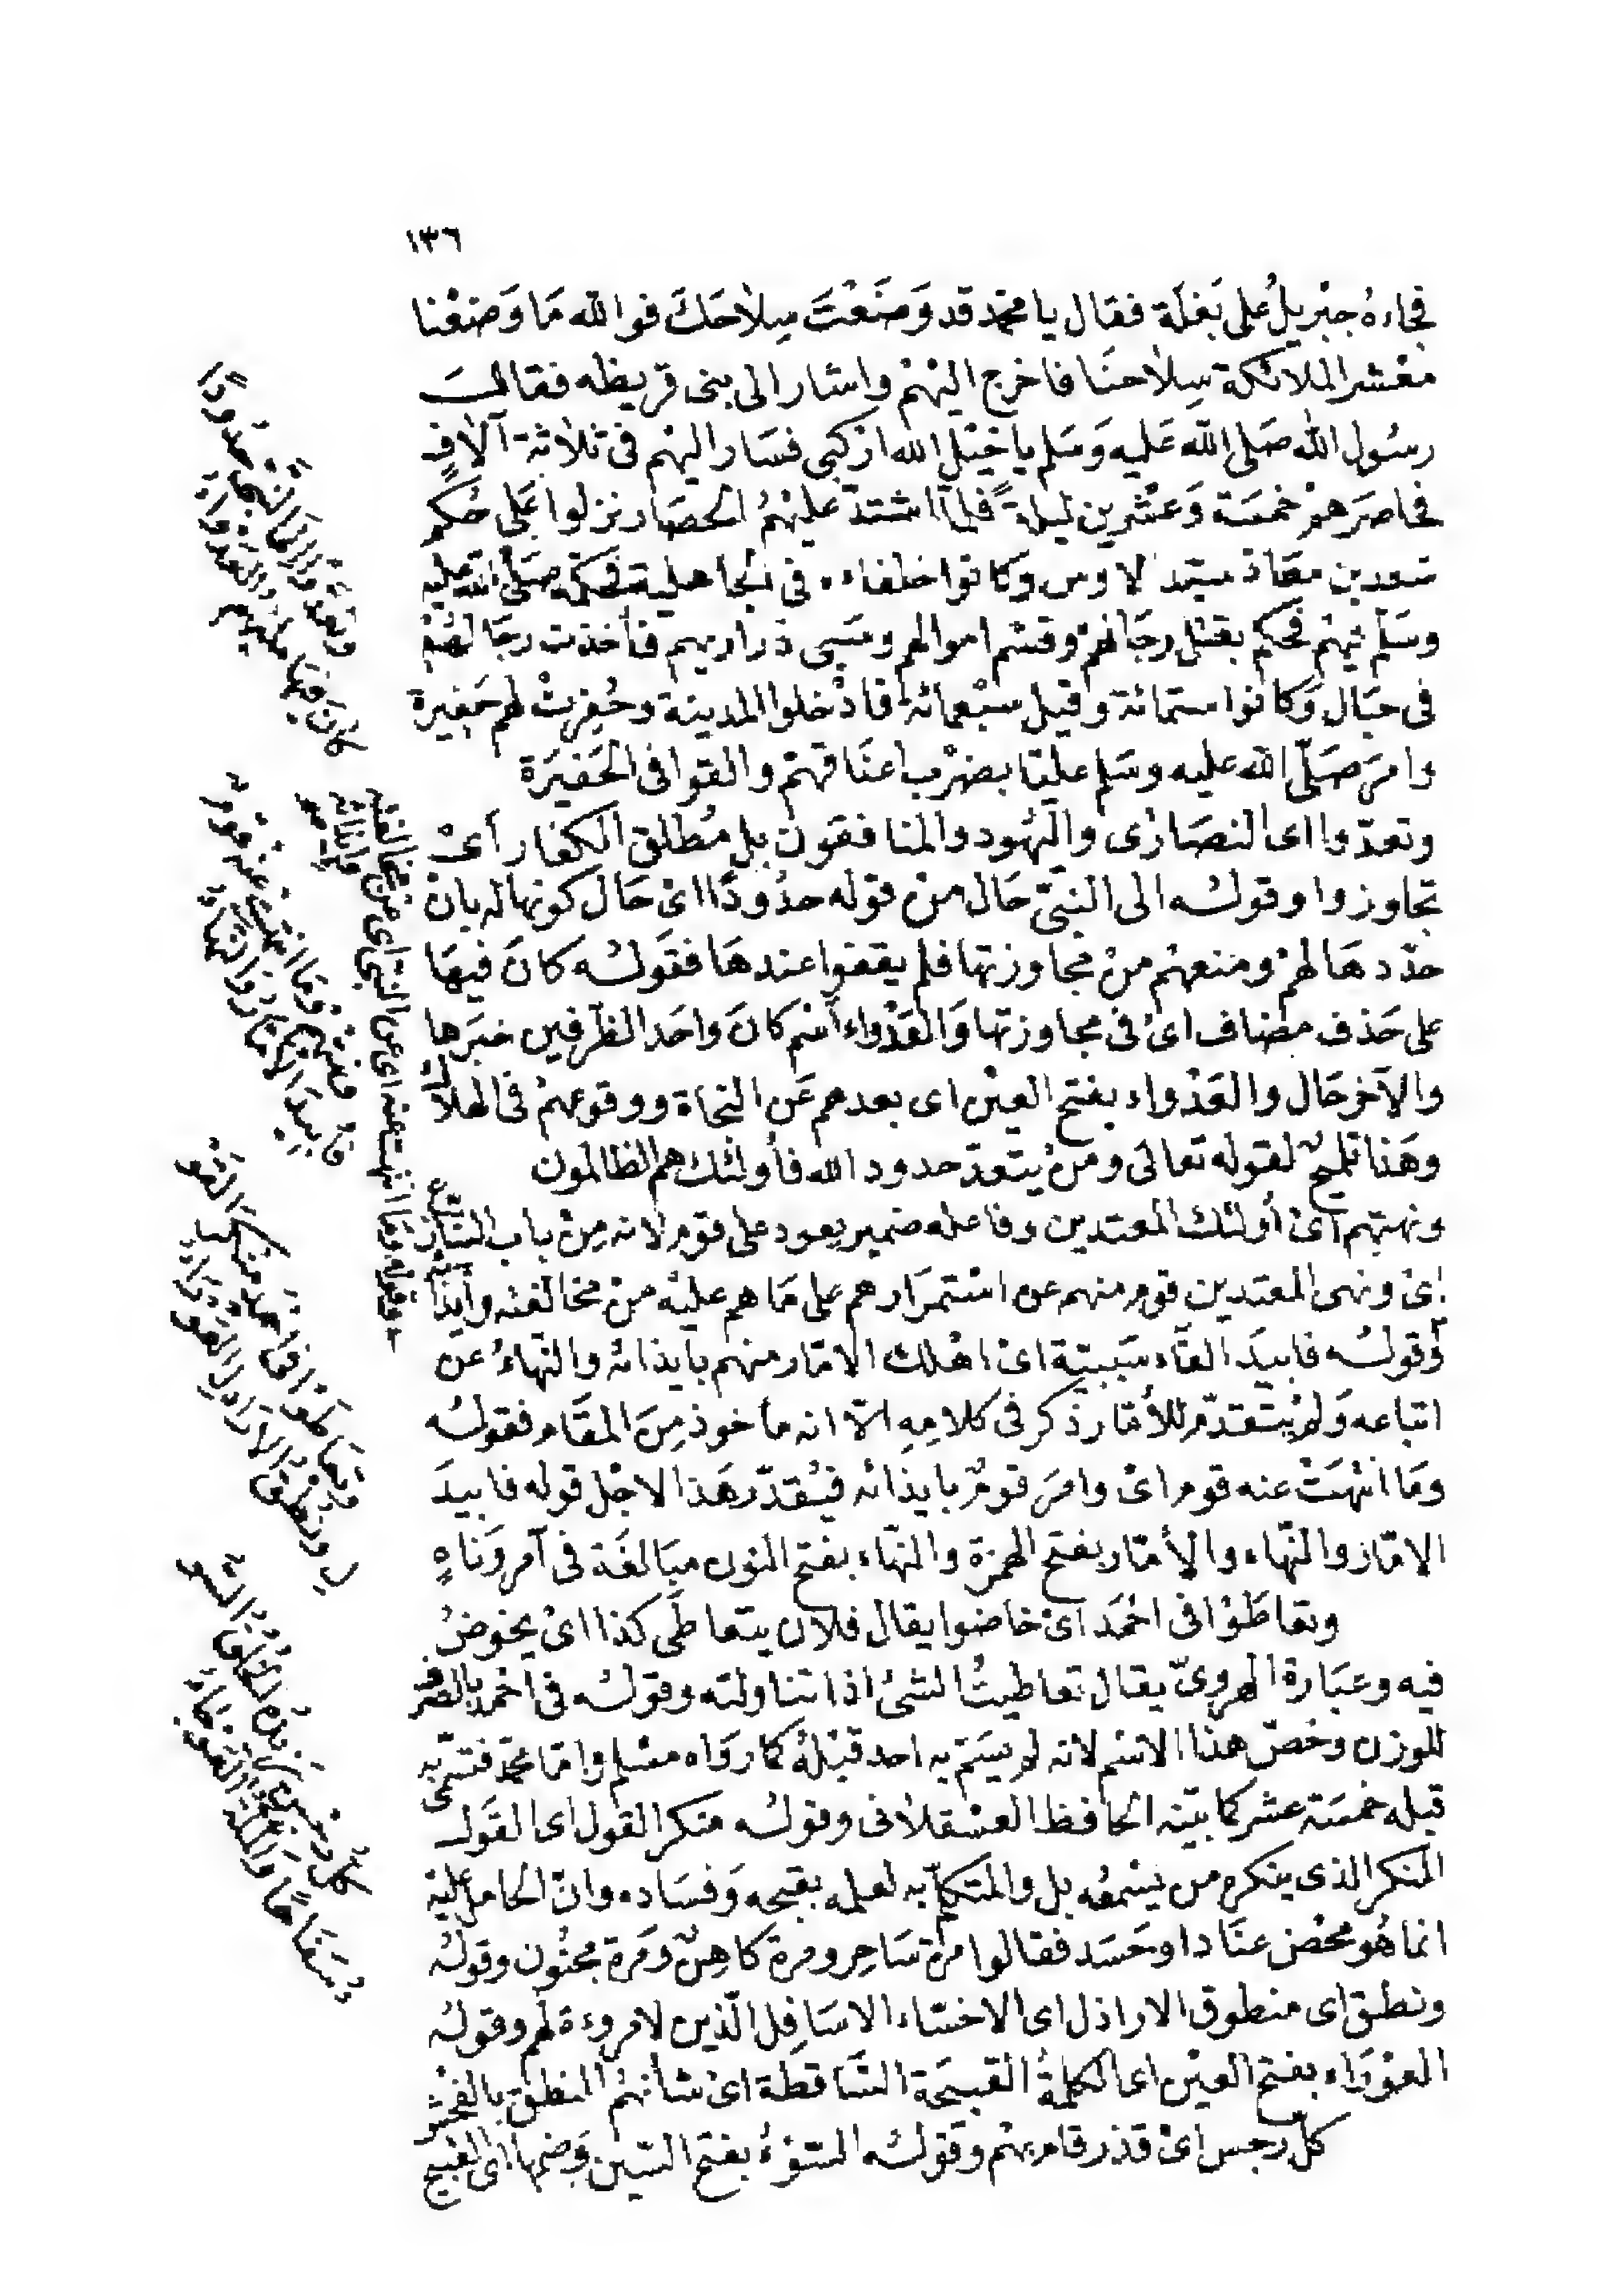 ١٣٦
فجاءه جبْريلُ على بَغلَة فقال يا محمّد قد وَضَعْتَ سِلاحَكَ فوالله مَا وَضعْنا
مَعْشر الملائكة سِلاحنَا فاخرج اليْهمْ واشار الى بنى قريظه فقالَ
رسُول الله صَلى الله عَليه وَسَلم يا خيْل الله اركبى فسَار اليْهم فى ثلاثة آلافٍ
فحاصَرَهمْ خمسَة وَعشْرين ليلةً فلمّا اشتدّ عليْهمُ الحصَار نزلوا عَلى حُكم
سَعد بن معَاذ سيّد الاوس وكانوا حلفاءه فى الجاهلية فحكّمه صَلّى الله عليه
وسَلم فيهمْ فحكم بقتْل رجَالهمْ وقسْم اموالهم وسَبى ذراريهم فأخذت رجَالهُمْ
فى حبَال وَكانوا ستمائة وقيل سبْعمائة فادْخلوا المدينة وحُفِرتْ لهم حَفيرة
وامرَ صَلّى الله عليه وسَلم عليّا بضرْب اعنَاقهمْ والقوا فى الحَفيرَة
وتعدّوا اى النصَارى واليَهُود والمنافقون بل مُطلق الكفار أىْ
تجاوزوا وقولـُه الى النبّى حَال منْ قوله حدُودًا اىْ حَال كونها له بانْ
حدّدهَا لهمْ ومنعهمْ منْ مجاوزتها فلم يقفوا عندهَا فقَولـُه كانَ فيهَا
على حَذف مضاف اىْ فى مجاوزتها وَالعَدْواء اسْم كانَ واحَد الظرفين خبَرها
والآخر حَال والعَدْواء بفتح العيْن اى بعدهم عَن النجاة ووقوعهمْ فى الهلاك
وهَذا تلميحٌ لقوله تعالى ومنْ يتعدّ حدود الله فأولئك هم الظالمون
ونهتهم اىْ أولئك المعتدين وفاعله ضمير يعود على قوم لانه مِنْ باب التنازع
اىْ ونهى المعتدين قوم منهم عن اسْتمرَارهم على مَا هم عليْه منْ مخالفته وايذائه
وقولـُه فابيدَ الفَاء سَببيّة اىْ اهْلك الامّار منهم بايذائه والنّهاءُ عن
اتباعه وَلمْ يتقدّم للأمّار ذكر فى كلامِهِ الّا انه مأخوذ مِنَ المقَام فقولـُه
ومَا انْتهَتْ عنه قوم اىْ وامرَ قومٌ بايذائه فيُقدّر هَذا لاجْل قوله فابيدَ
الامّار والنّهاء والأمّار بفتح الهمزة والنهّاء بفتح النون مبَالغَة فى آمر وَناهٍ
وتعاطَوْا فى احْمَد اىْ خاضوا يقال فلان يتعاطى كذا اىْ يخوضُ
فيه وعبَارة الهروىّ يقال تعاطيتُ الشئ اذا تناولته وقولـُه فى احْمَد بالصرف
للوزن وخصّ هذا الاسْم لانه لم يسَمّ به احد قبْلهُ كما روَاه مسْلم وامّا محمّد فتسمّى به
قبله خمسَة عشر كما بيّنه الحافظ العسْقلانى وقولـُه منكر القول اى القَول
المنكر الذى ينكره من يسْمعُه بل والمتكلم به لعلمه بقبحه وَفسَاده وانّ الحامل عليْه
انما هُو محْض عنَاد او حَسَد فقالوا مرة سَاحِر ومرة كاهِنٌ وَمَرة مجنُون وقولـُه
ونطق اى منطوق الاراذل اى الاخسّاء الاسَافِل الّذين لا مروءة لهم وقولـُه
العوْرَاء بفتح العيْن اى الكلمةُ القبيحَة السَّاقطة اىْ شأنهُمُ النطق بالفحْش
كلّ رجس اىْ قذر قام بهمْ وقولـُه السّوْءُ بفتح السّين وَضمها اى القبيح
وتعدّوا الى النّبىّ حُدودًا
كانَ فيها عليهم العَدْواءُ
ونهتهم وَمَا انتهت عنه قومٌ
فأبيدَ الأمّارُ وَالنّهاءُ
وقوله ومَا انتهت عنه اى عن النبى اى عن مخالفته وايذائه
وتعَاطوْا فى أحمدَ منكرَ القوْ
لِ ونطْقُ الأرَاذِل العَوْرَاءُ
كلُّ رجسٍ يَزيدُه الخُلُقُ السّو
ءُ سَفَاهًا وَالملّةُ العَوْجَاءُ